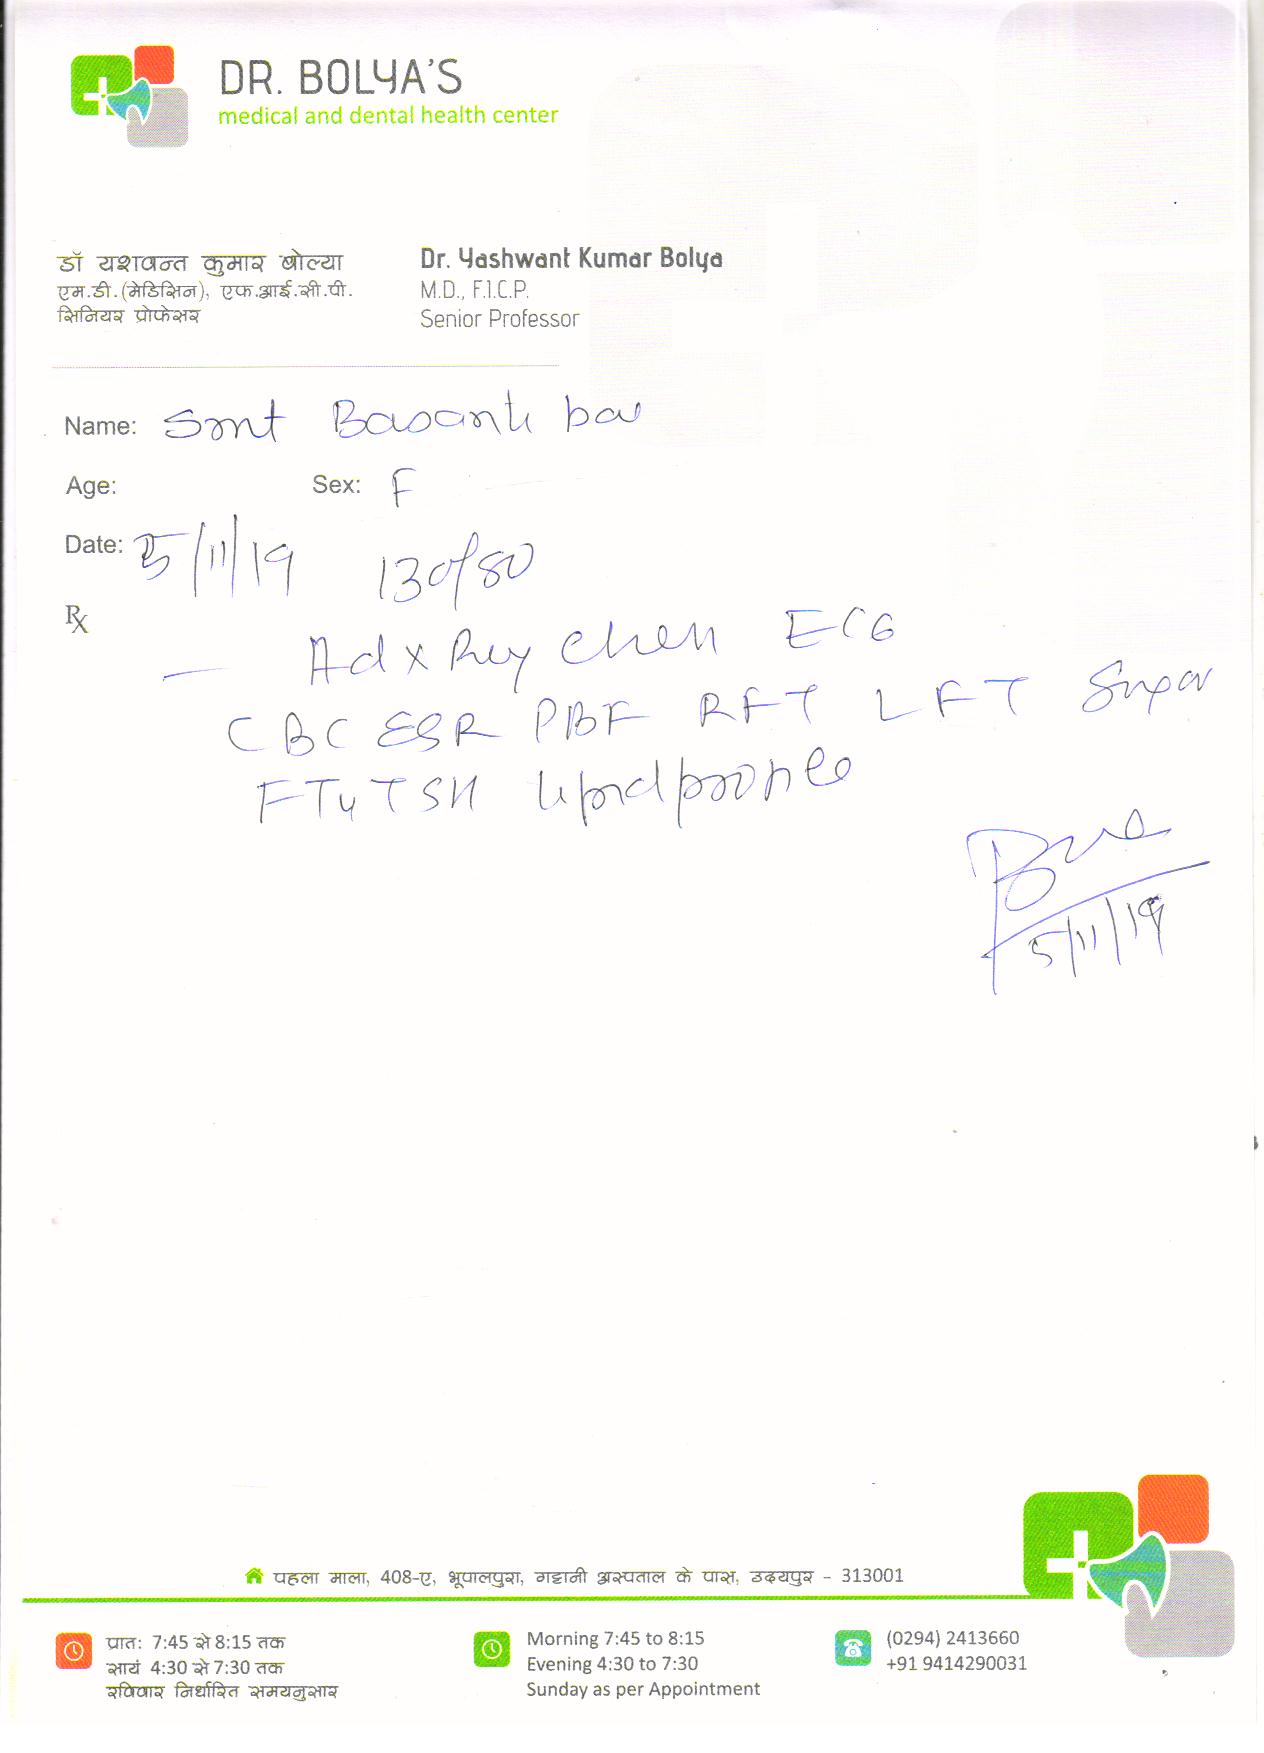 DR. BOLYA'S
medical and dental health center
डॉ यशवन्त कुमार बोल्या
एम.डी.(मेडिसिन), एफ.आई.सी.पी.
सिनियर प्रोफेसर
Dr. Yashwant Kumar Bolya
M.D., F.I.C.P.
Senior Professor
Name: Smt Basanti bai
Age: Sex: F
Date: 5/11/19 130/80
Rx
— Ad x Ray Chest ECG
CBC ESR PBF RFT LFT Sugar
FT4 TSH lipid profile
5/11/19
पहला माला, 408-ए, भूपालपुरा, गट्टानी अस्पताल के पास, उदयपुर - 313001
प्रात: 7:45 से 8:15 तक
सायं 4:30 से 7:30 तक
रविवार निर्धारित समयनुसार
Morning 7:45 to 8:15
Evening 4:30 to 7:30
Sunday as per Appointment
(0294) 2413660
+91 9414290031